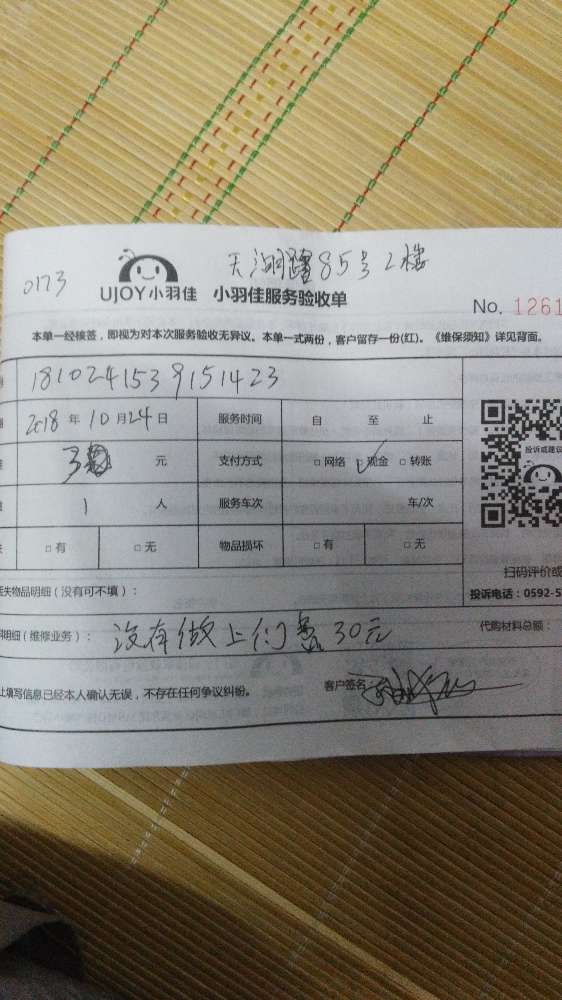 天湖路85号2楼
0173
UJOY小羽佳 小羽佳服务验收单
No. 1261
本单一经核签，即视为对本次服务验收无异议。本单一式两份，客户留存一份(红)。《维保须知》详见背面。
1810241539151423
2018 年 10 月 24 日 服务时间 自 至 止
元 支付方式 □网络 □现金 □转账
投诉或建议
1 人 服务车次 车/次
□有 □无 物品损坏 □有 □无
扫码评价或
失物品明细（没有可不填）：
投诉电话：0592-5
明细（维修业务）： 没有做上门 30元 代购材料总额：
上填写信息已经本人确认无误，不存在任何争议纠纷。 客户签名：